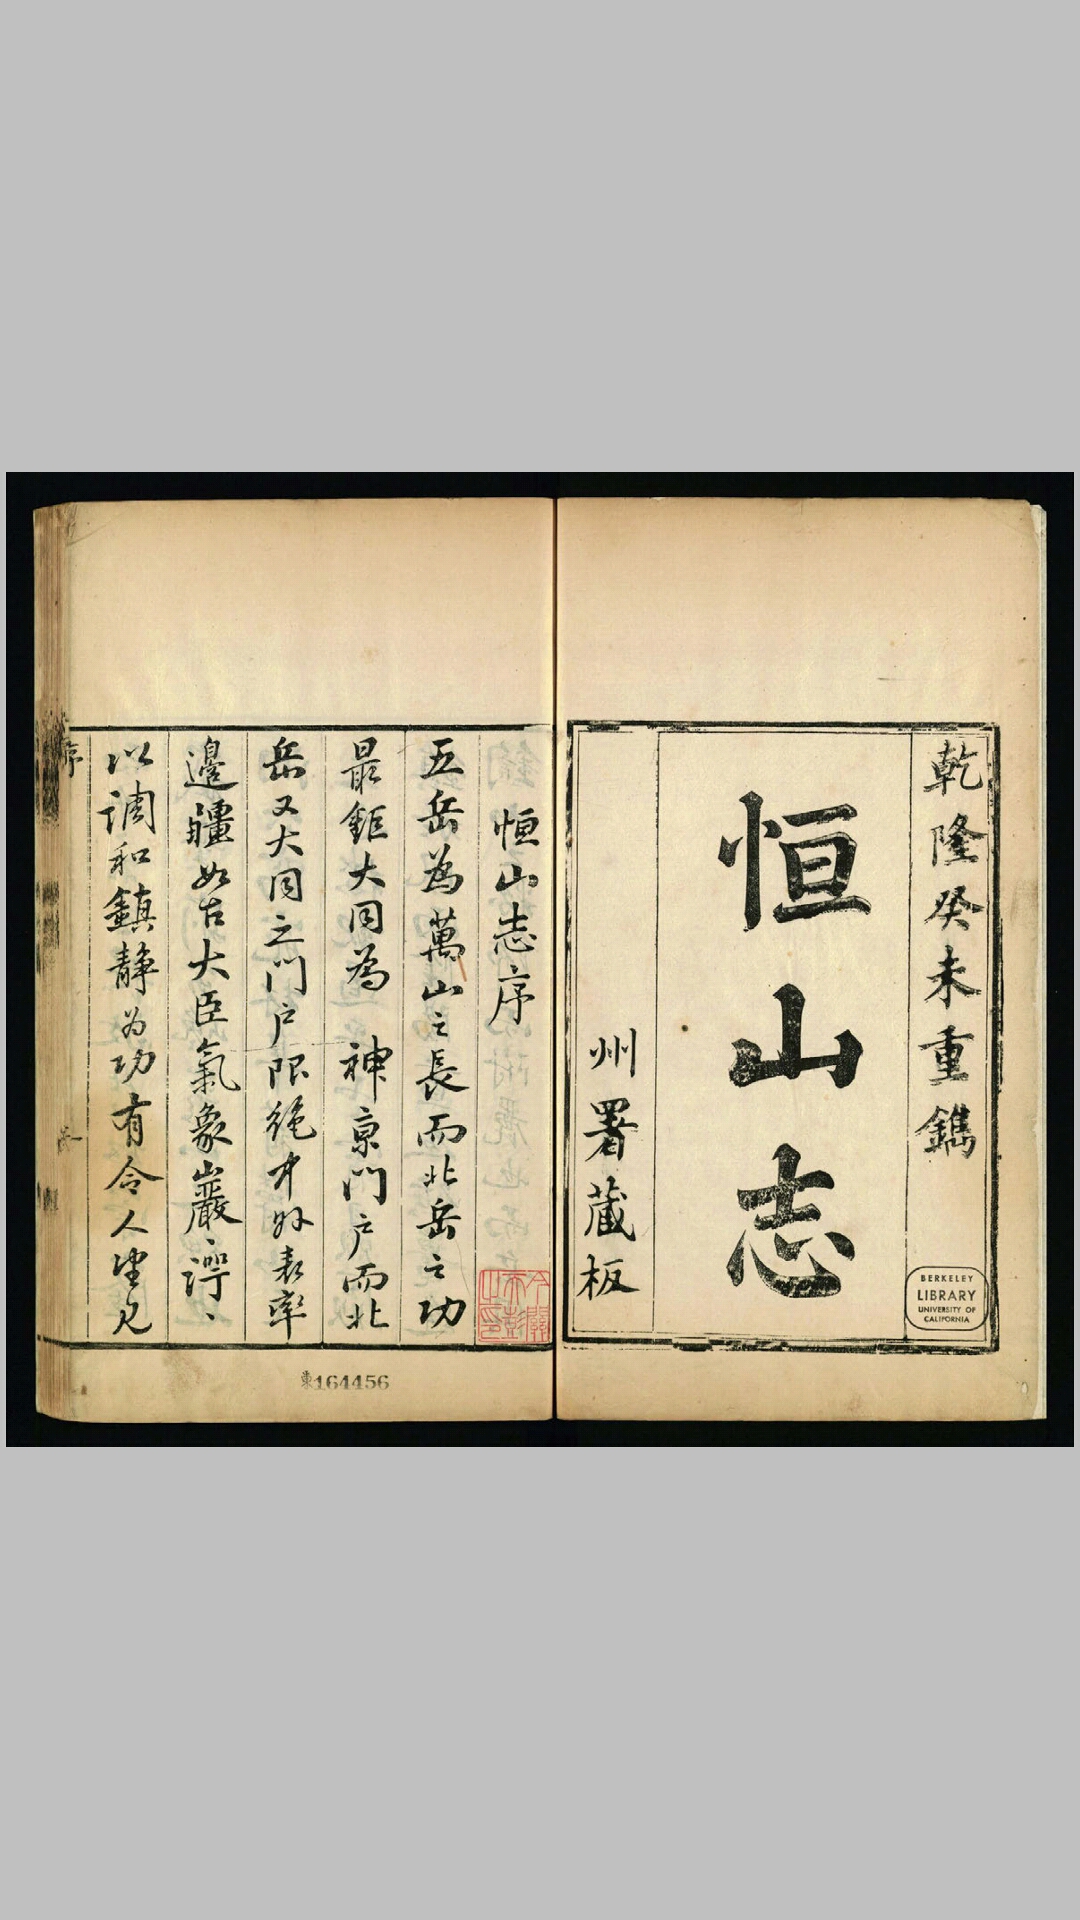 乾隆癸未重鐫
恒山志
州署藏板
BERKELEY
LIBRARY
UNIVERSITY OF
CALIFORNIA
恒山志序
五岳為萬山之長而北岳之功
最鉅大同為 神京門户而北
岳又大同之門户限絶中外表率
邊疆如古大臣氣象巖
以調和鎮静为功有令人望見
序
東164456